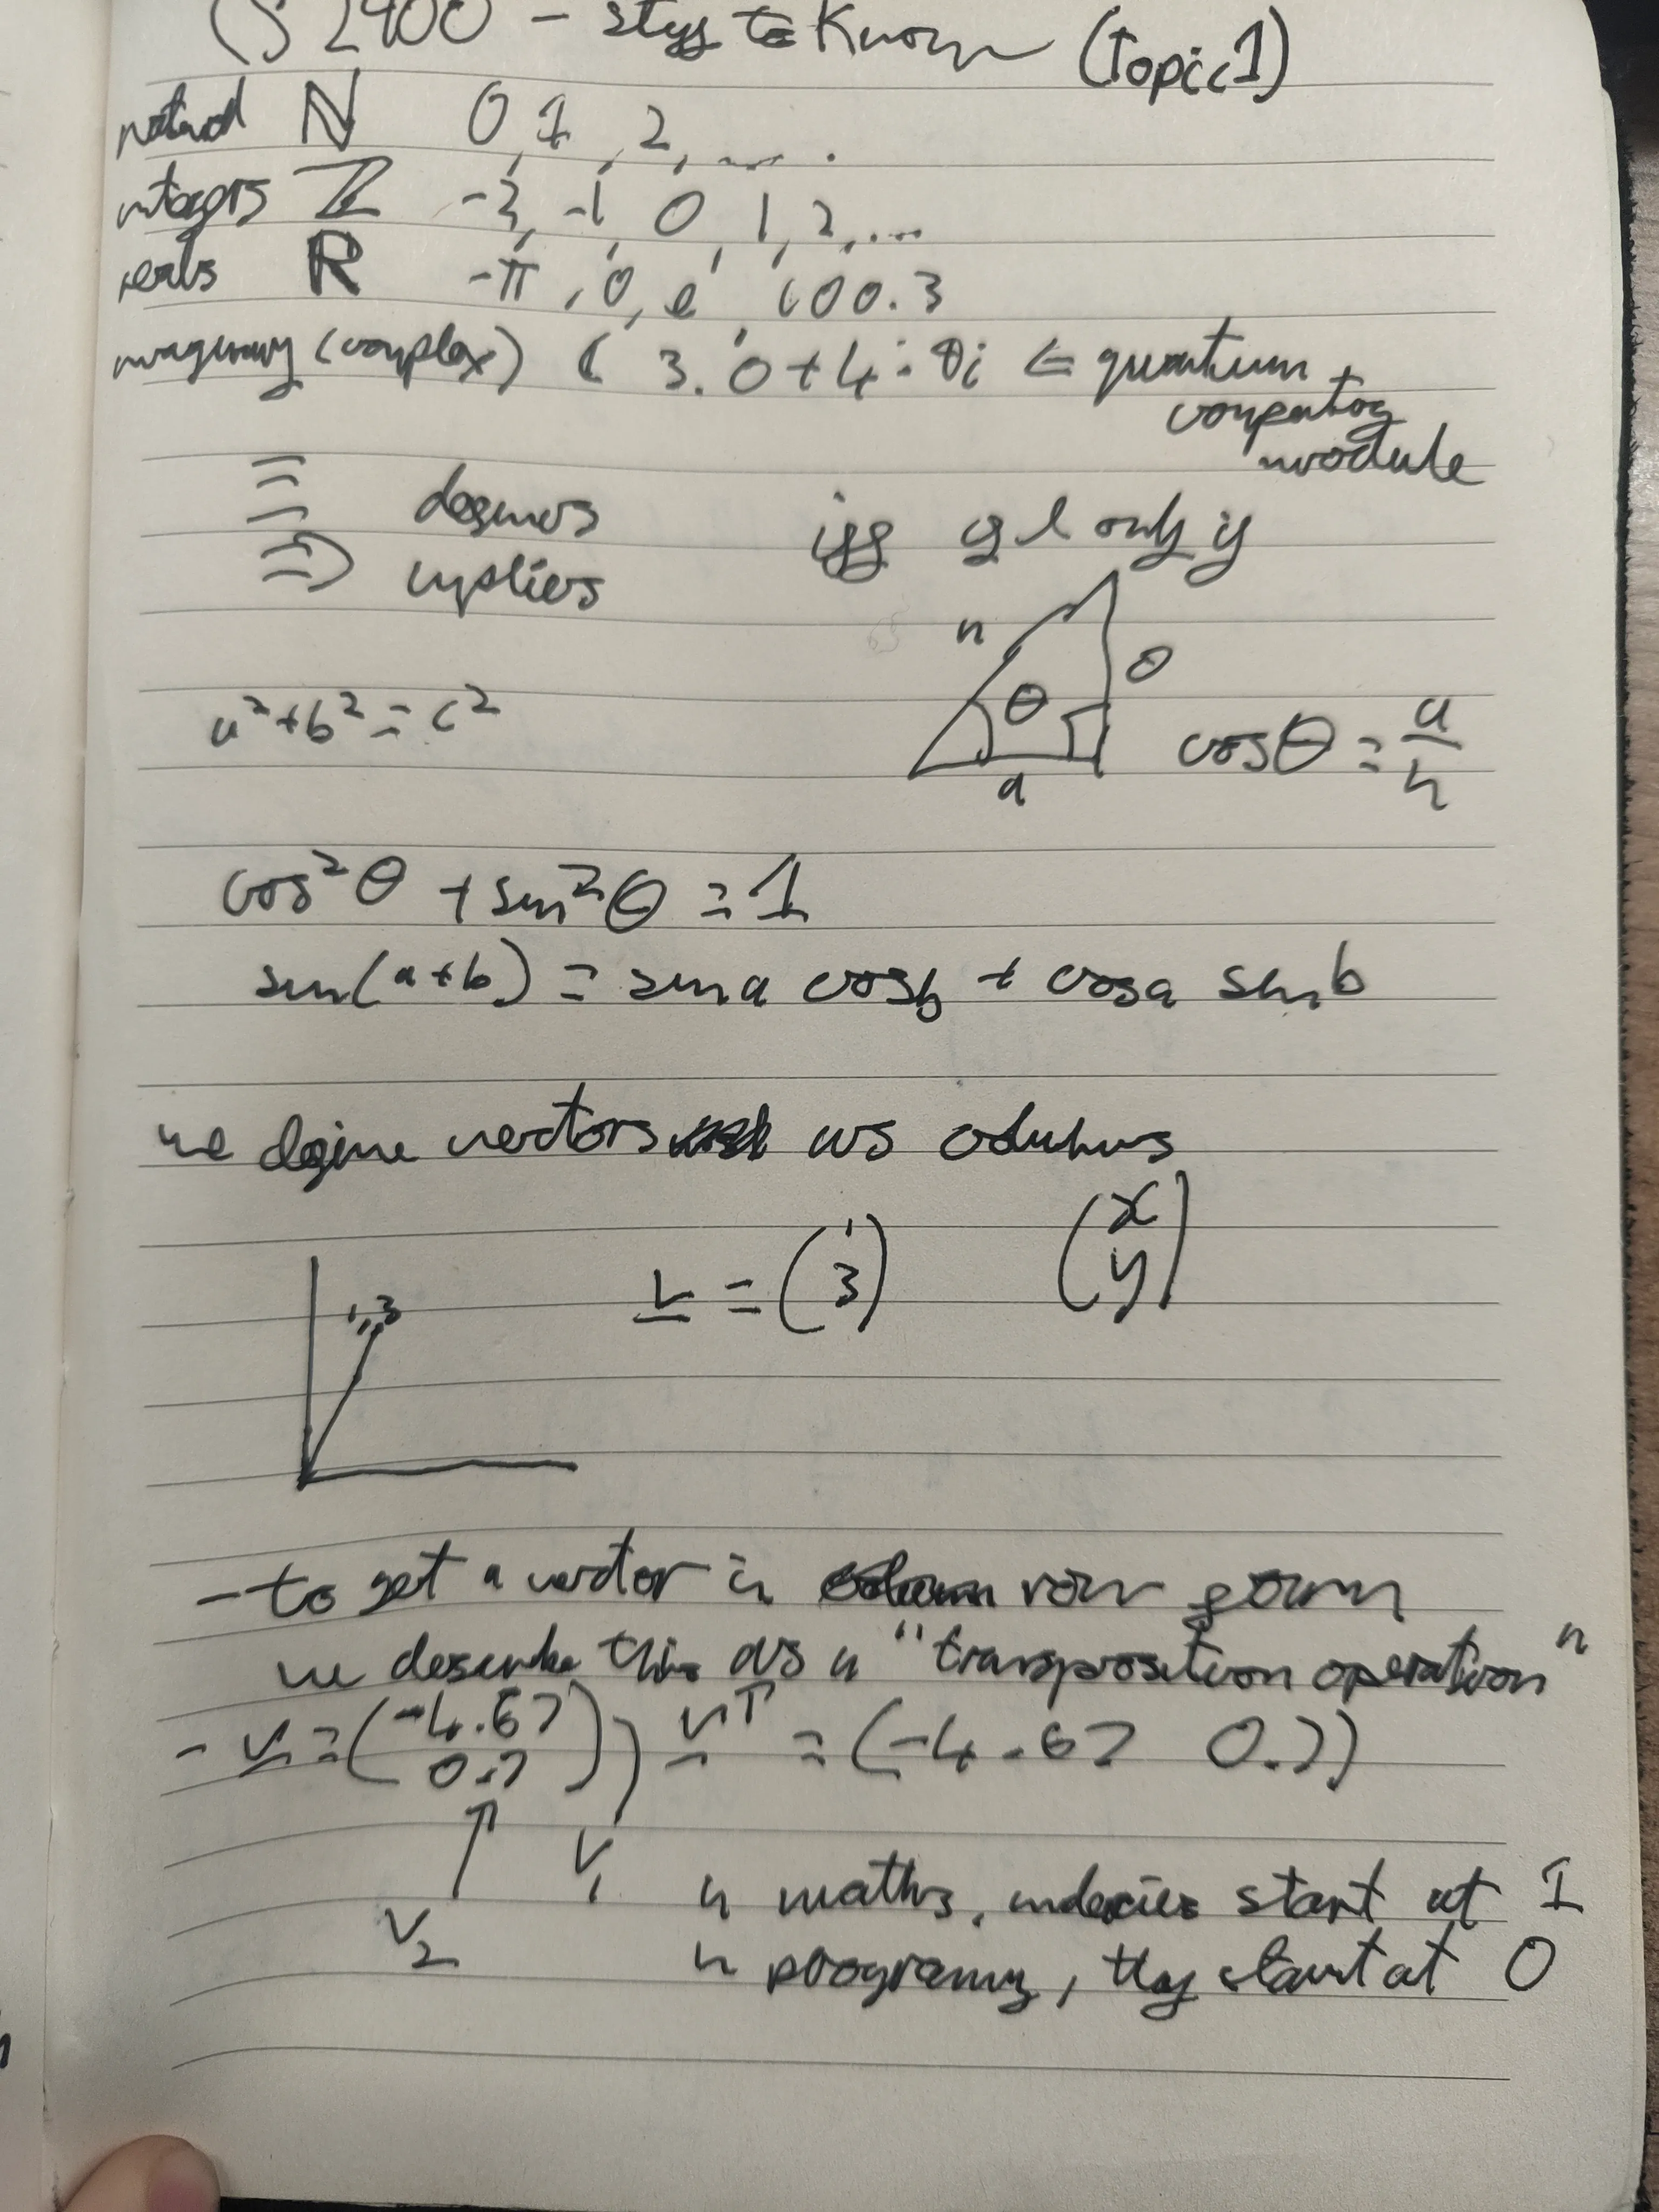 CS 2400 - stuff to know (Topic 1)
natural ℕ 0, 1, 2, ... .
integers ℤ -2, -1, 0, 1, 2, ...
reals ℝ -π, 0, e, 100.3
imaginary (complex) ℂ 3.0 + 4.0i ⇐ quantum
computing
module
≡ defines iff if & only if
⇒ implies
h
o
θ
a
a² + b² = c² cos θ = a/h
cos² θ + sin² θ = 1
sin(a+b) = sin a cos b + cos a sin b
we define vectors as columns
v = (1 3) (x y)
1,3
- to get a vector in row form
we describe this as a "transposition operation"
- v = (-4.67 0.7) vᵀ = (-4.67 0.7)
v₁
v₂
in maths, indecies start at 1
in programing, they start at 0